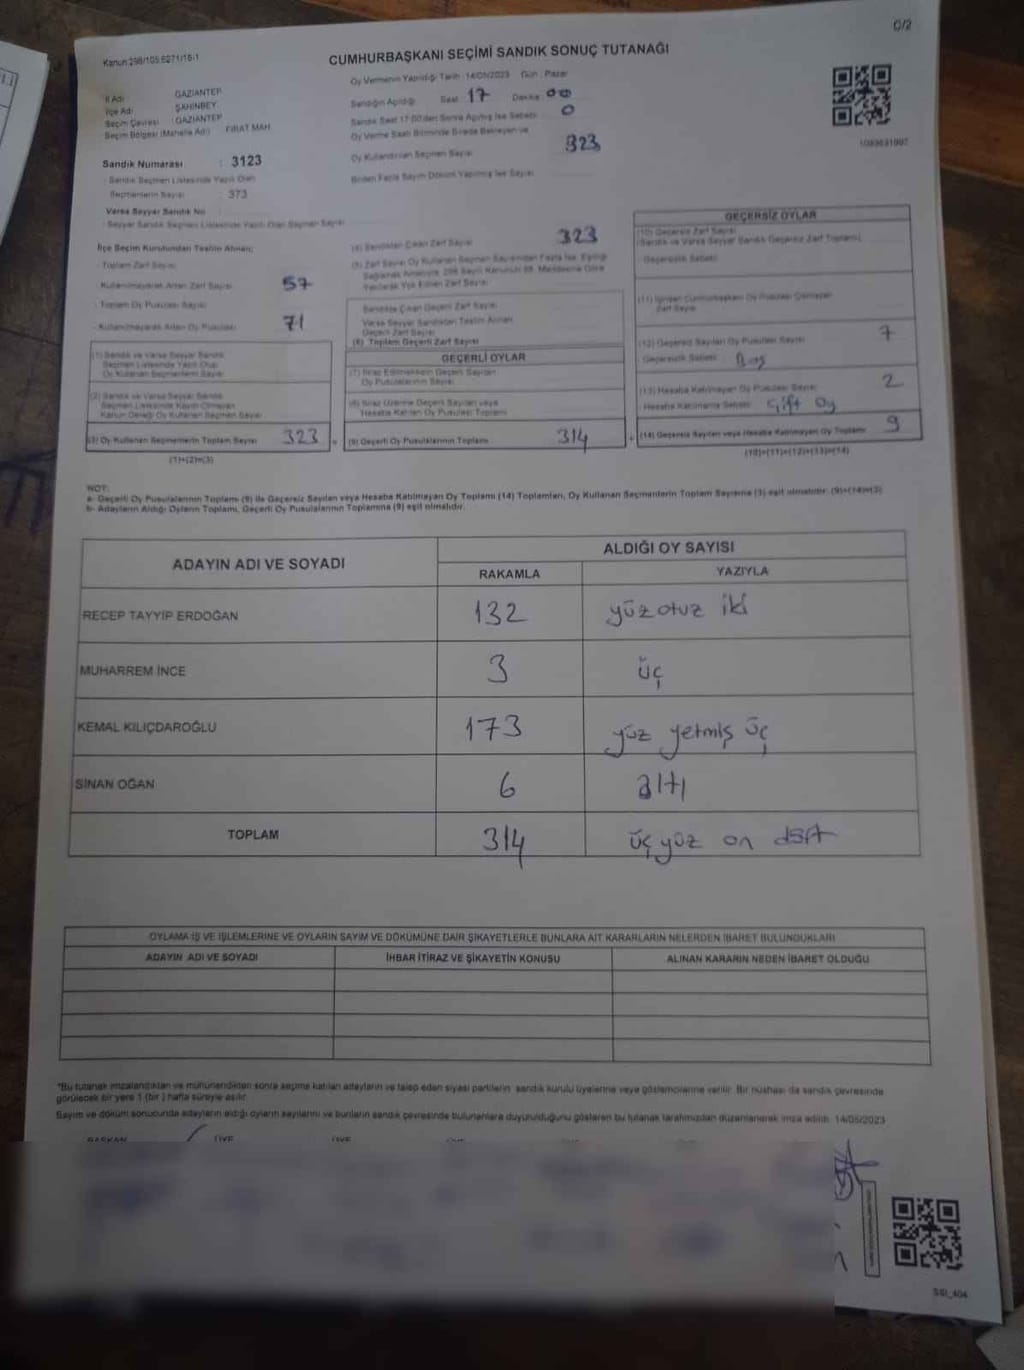 C/2
Kanun:298/105.6271/15-1
CUMHURBAŞKANI SEÇİMİ SANDIK SONUÇ TUTANAĞI
Oy Vermenin Yapıldığı Tarih : 14/05/2023 Gün : Pazar
İl Adı : GAZİANTEP
İlçe Adı : ŞAHİNBEY
Seçim Çevresi : GAZİANTEP
Seçim Bölgesi (Mahalle Adı) : FIRAT MAH.
Sandığın Açıldığı Saat 17 Dakika 00
Sandık Saat 17:00'den Sonra Açılmış İse Sebebi 0
Oy Verme Saati Bitiminde Sırada Bekleyen ve
Oy Kullandırılan Seçmen Sayısı 323
Birden Fazla Sayım Döküm Yapılmış İse Sayısı
Sandık Numarası : 3123
- Sandık Seçmen Listesinde Yazılı Olan
Seçmenlerin Sayısı : 373
Varsa Seyyar Sandık No
- Seyyar Sandık Seçmen Listesinde Yazılı Olan Seçmen Sayısı
İlçe Seçim Kurulundan Teslim Alınan;
- Toplam Zarf Sayısı
- Kullanılmayarak Artan Zarf Sayısı 57
- Toplam Oy Pusulası Sayısı
- Kullanılmayarak Artan Oy Pusulası 71
(1) Sandık ve Varsa Seyyar Sandık
Seçmen Listesinde Yazılı Olup
Oy Kullanan Seçmenlerin Sayısı
(2) Sandık ve Varsa Seyyar Sandık
Seçmen Listesinde Kaydı Olmayan
Kanun Gereği Oy Kullanan Seçmen Sayısı
(3) Oy Kullanan Seçmenlerin Toplam Sayısı 323
(1)+(2)=(3)
(4) Sandıktan Çıkan Zarf Sayısı 323
(5) Zarf Sayısı Oy Kullanan Seçmen Sayısından Fazla İse, Eşitliği
Sağlamak Amacıyla, 298 Sayılı Kanunun 98. Maddesine Göre
Yakılarak Yok Edilen Zarf Sayısı
Sandıkta Çıkan Geçerli Zarf Sayısı
Varsa Seyyar Sandıktan Teslim Alınan
Geçerli Zarf Sayısı
(6) Toplam Geçerli Zarf Sayısı
GEÇERLİ OYLAR
(7) İtiraz Edilmeksizin Geçerli Sayılan
Oy Pusulalarının Sayısı
(8) İtiraz Üzerine Geçerli Sayılan veya
Hesaba Katılan Oy Pusulası Toplamı
(9) Geçerli Oy Pusulalarının Toplamı 314
GEÇERSİZ OYLAR
(10) Geçersiz Zarf Sayısı
(Sandık ve Varsa Seyyar Sandık Geçersiz Zarf Toplamı)
Geçersizlik Sebebi
(11) İçinden Cumhurbaşkanı Oy Pusulası Çıkmayan
Zarf Sayısı
(12) Geçersiz Sayılan Oy Pusulası Sayısı 7
Geçersizlik Sebebi Boş
(13) Hesaba Katılmayan Oy Pusulası Sayısı 2
Hesaba Katılmama Sebebi Çift Oy
(14) Geçersiz Sayılan veya Hesaba Katılmayan Oy Toplamı 9
(10)+(11)+(12)+(13)=(14)
NOT:
a- Geçerli Oy Pusulalarının Toplamı (9) ile Geçersiz Sayılan veya Hesaba Katılmayan Oy Toplamı (14) Toplamları, Oy Kullanan Seçmenlerin Toplam Sayısına (3) eşit olmalıdır. (9)+(14)=(3)
b- Adayların Aldığı Oyların Toplamı, Geçerli Oy Pusulalarının Toplamına (9) eşit olmalıdır.
ADAYIN ADI VE SOYADI ALDIĞI OY SAYISI
RAKAMLA YAZIYLA
RECEP TAYYİP ERDOĞAN 132 yüz otuz iki
MUHARREM İNCE 3 üç
KEMAL KILIÇDAROĞLU 173 yüz yetmiş üç
SİNAN OĞAN 6 altı
TOPLAM 314 üç yüz on dört
OYLAMA İŞ VE İŞLEMLERİNE VE OYLARIN SAYIM VE DÖKÜMÜNE DAİR ŞİKAYETLERLE BUNLARA AİT KARARLARIN NELERDEN İBARET BULUNDUKLARI
ADAYIN ADI VE SOYADI İHBAR İTİRAZ VE ŞİKAYETİN KONUSU ALINAN KARARIN NEDEN İBARET OLDUĞU
*Bu tutanak imzalandıktan ve mühürlendikten sonra seçime katılan adayların ve talep eden siyasi partilerin sandık kurulu üyelerine veya gözlemcilerine verilir. Bir nüshası da sandık çevresinde
görülecek bir yere 1 (bir ) hafta süreyle asılır.
Sayım ve döküm sonucunda adayların aldığı oyların sayılarını ve bunların sandık çevresinde bulunanlara duyurulduğunu gösteren bu tutanak tarafımızdan düzenlenerek imza edildi. 14/05/2023
BAŞKAN ÜYE ÜYE